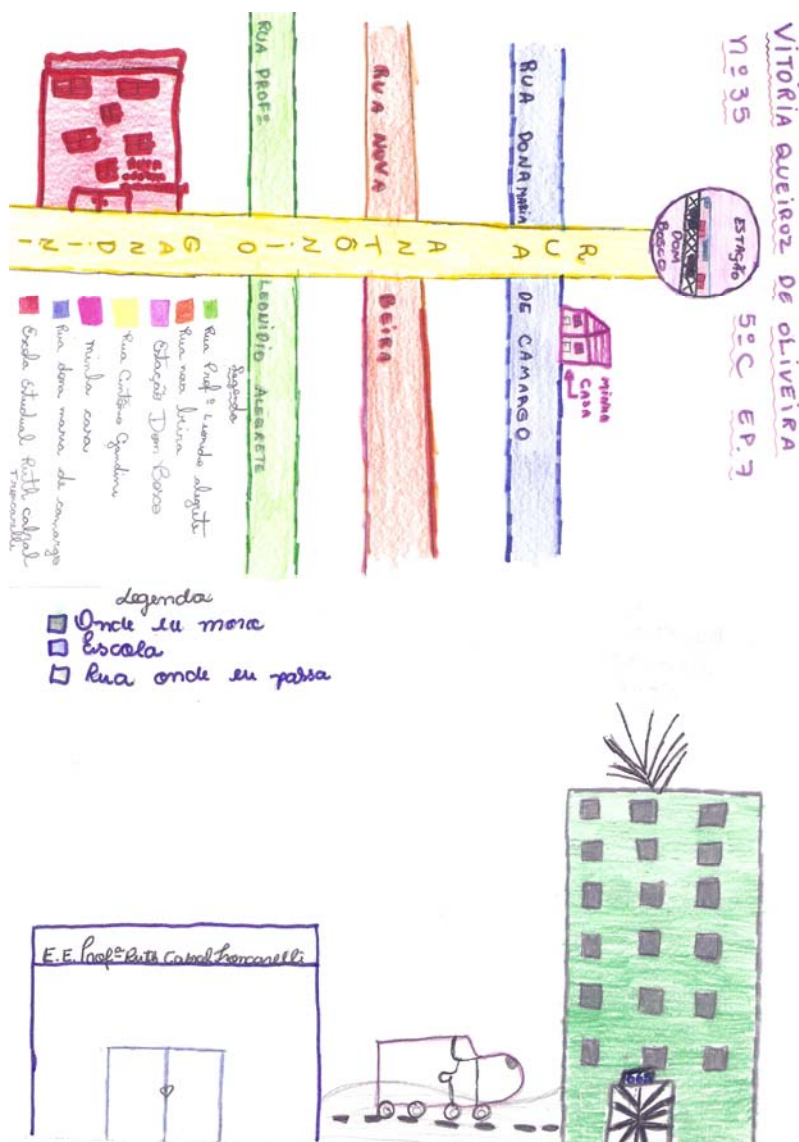 VITÓRIA QUEIROZ DE OLIVEIRA
Nº 35 5º C EP. 7
ESTAÇÃO
DOM
BOSCO
RUA DONA MARIA DE CAMARGO
MINHA
CASA
RUA NOVA BEIRA
RUA PROFº LEONIDIO ALEGRETE
RUA ANTÔNIO GANDINI
Legenda
Rua Profº Leonido alegrete
Rua nova beira
Estação Dom Bosco
Rua Antônio Gandini
minha casa
Rua dona maria de camargo
Escola Estadual Ruth cabral
Troncarelli
Legenda
Onde eu moro
Escola
Rua onde eu passa
E.E. Profª Ruth Cabral Troncarelli